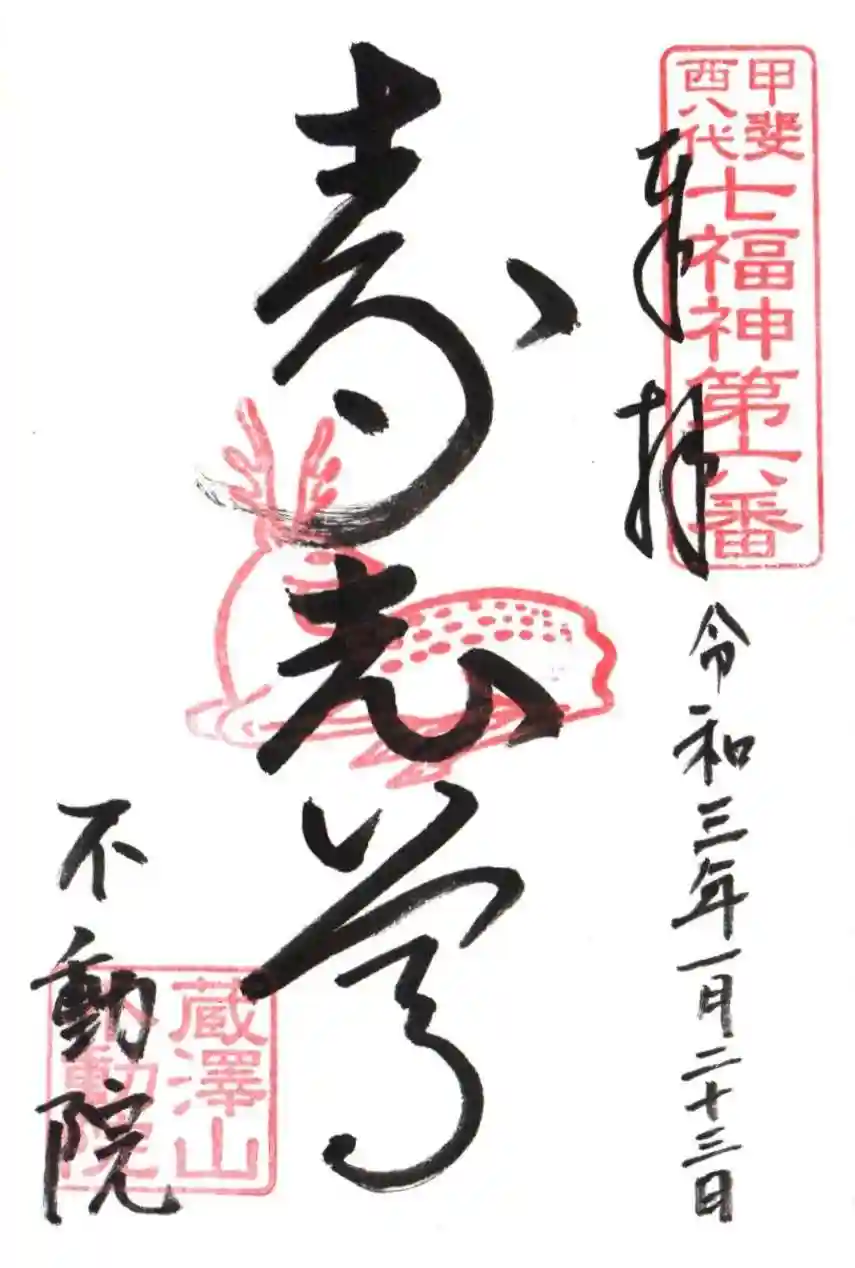 甲斐
西八代
七福神第六番
奉拝
令和三年一月二十三日
寿老尊
不動院
蔵澤山
不動院